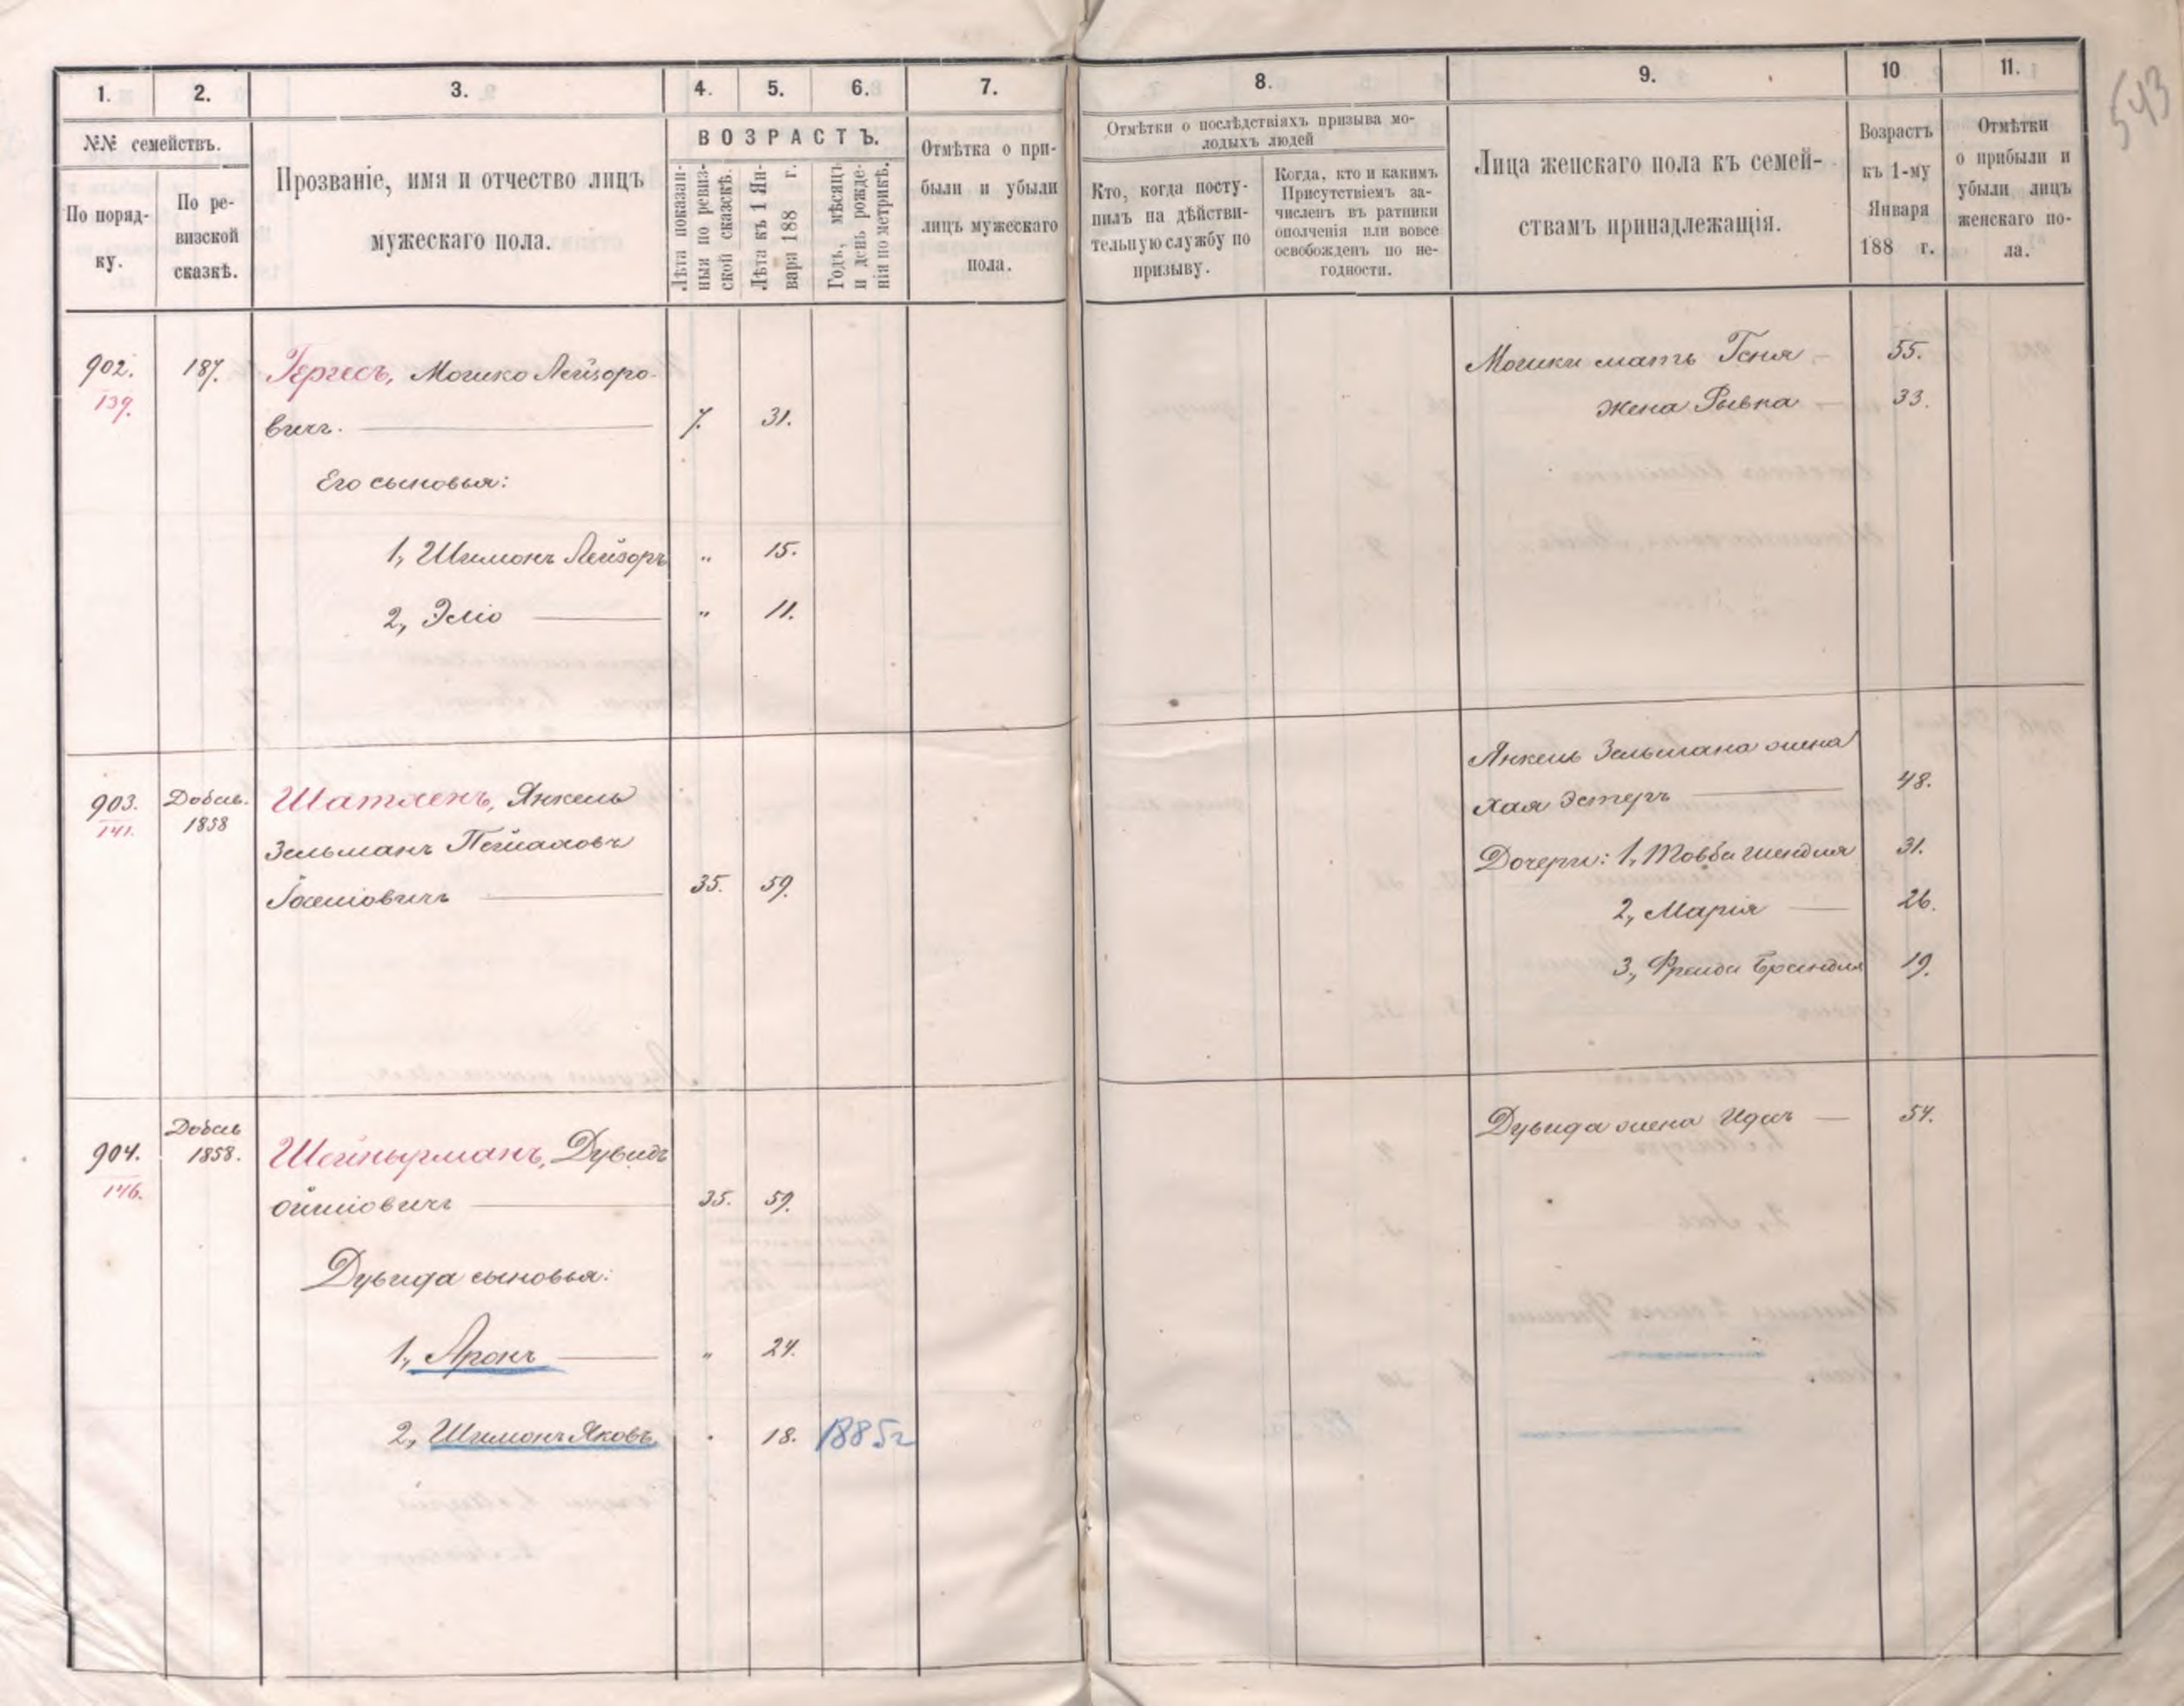 543
1.
2.
3.
4.
5.
6.
7.
8.
9.
10
11.
№№ семействъ.
По поряд-
ку.
По ре-
визской
сказкѣ.
Прозваніе, имя и отчество лицъ
мужескаго пола.
ВОЗРАСТЪ.
Лѣта показан-
ныя по ревиз-
ской сказскѣ.
Лѣта къ 1 Ян-
варя 188 г.
Годъ, мѣсяцъ
и день рожде-
нія по метрикѣ.
Отмѣтка о при-
были и убыли
лицъ мужескаго
пола.
Отмѣтки о послѣдствіяхъ призыва мо-
лодыхъ людей
Кто, когда посту-
пилъ на дѣйстви-
тельную службу по
призыву.
Когда, кто и какимъ
Присутствіемъ за-
численъ въ ратники
ополченія или вовсе
освобожденъ по не-
годности.
Лица женскаго пола къ семей-
ствамъ принадлежащія.
Возрастъ
къ 1-му
Января
188 г.
Отмѣтки
о прибыли и
убыли лицъ
женскаго по-
ла.
902. 187. Гергесъ, Мошко Лейзоро-
139.
вичъ. 7. 31.
Его сыновья:
1, Шимонъ Лейзоръ " 15.
2, Эліо " 11.
Мошки мать Геня 55.
жена Рывка 33.
903. Добав. Шатленъ, Янкель
141. 1858
Зельманъ
35. 59.
Янкель Зельмана жена
Хая Эстеръ 48.
Дочери: 1, Товба Шендля 31.
2, Марія 26.
3, Фрейда Брайндля 19.
904. Добав Шейнырманъ, Дувидъ
1858.
146.
35. 59.
Дувида сыновья:
1, Аронъ " 24.
2, Шимонъ Яковъ 18. 1885г
Дувида жена 54.